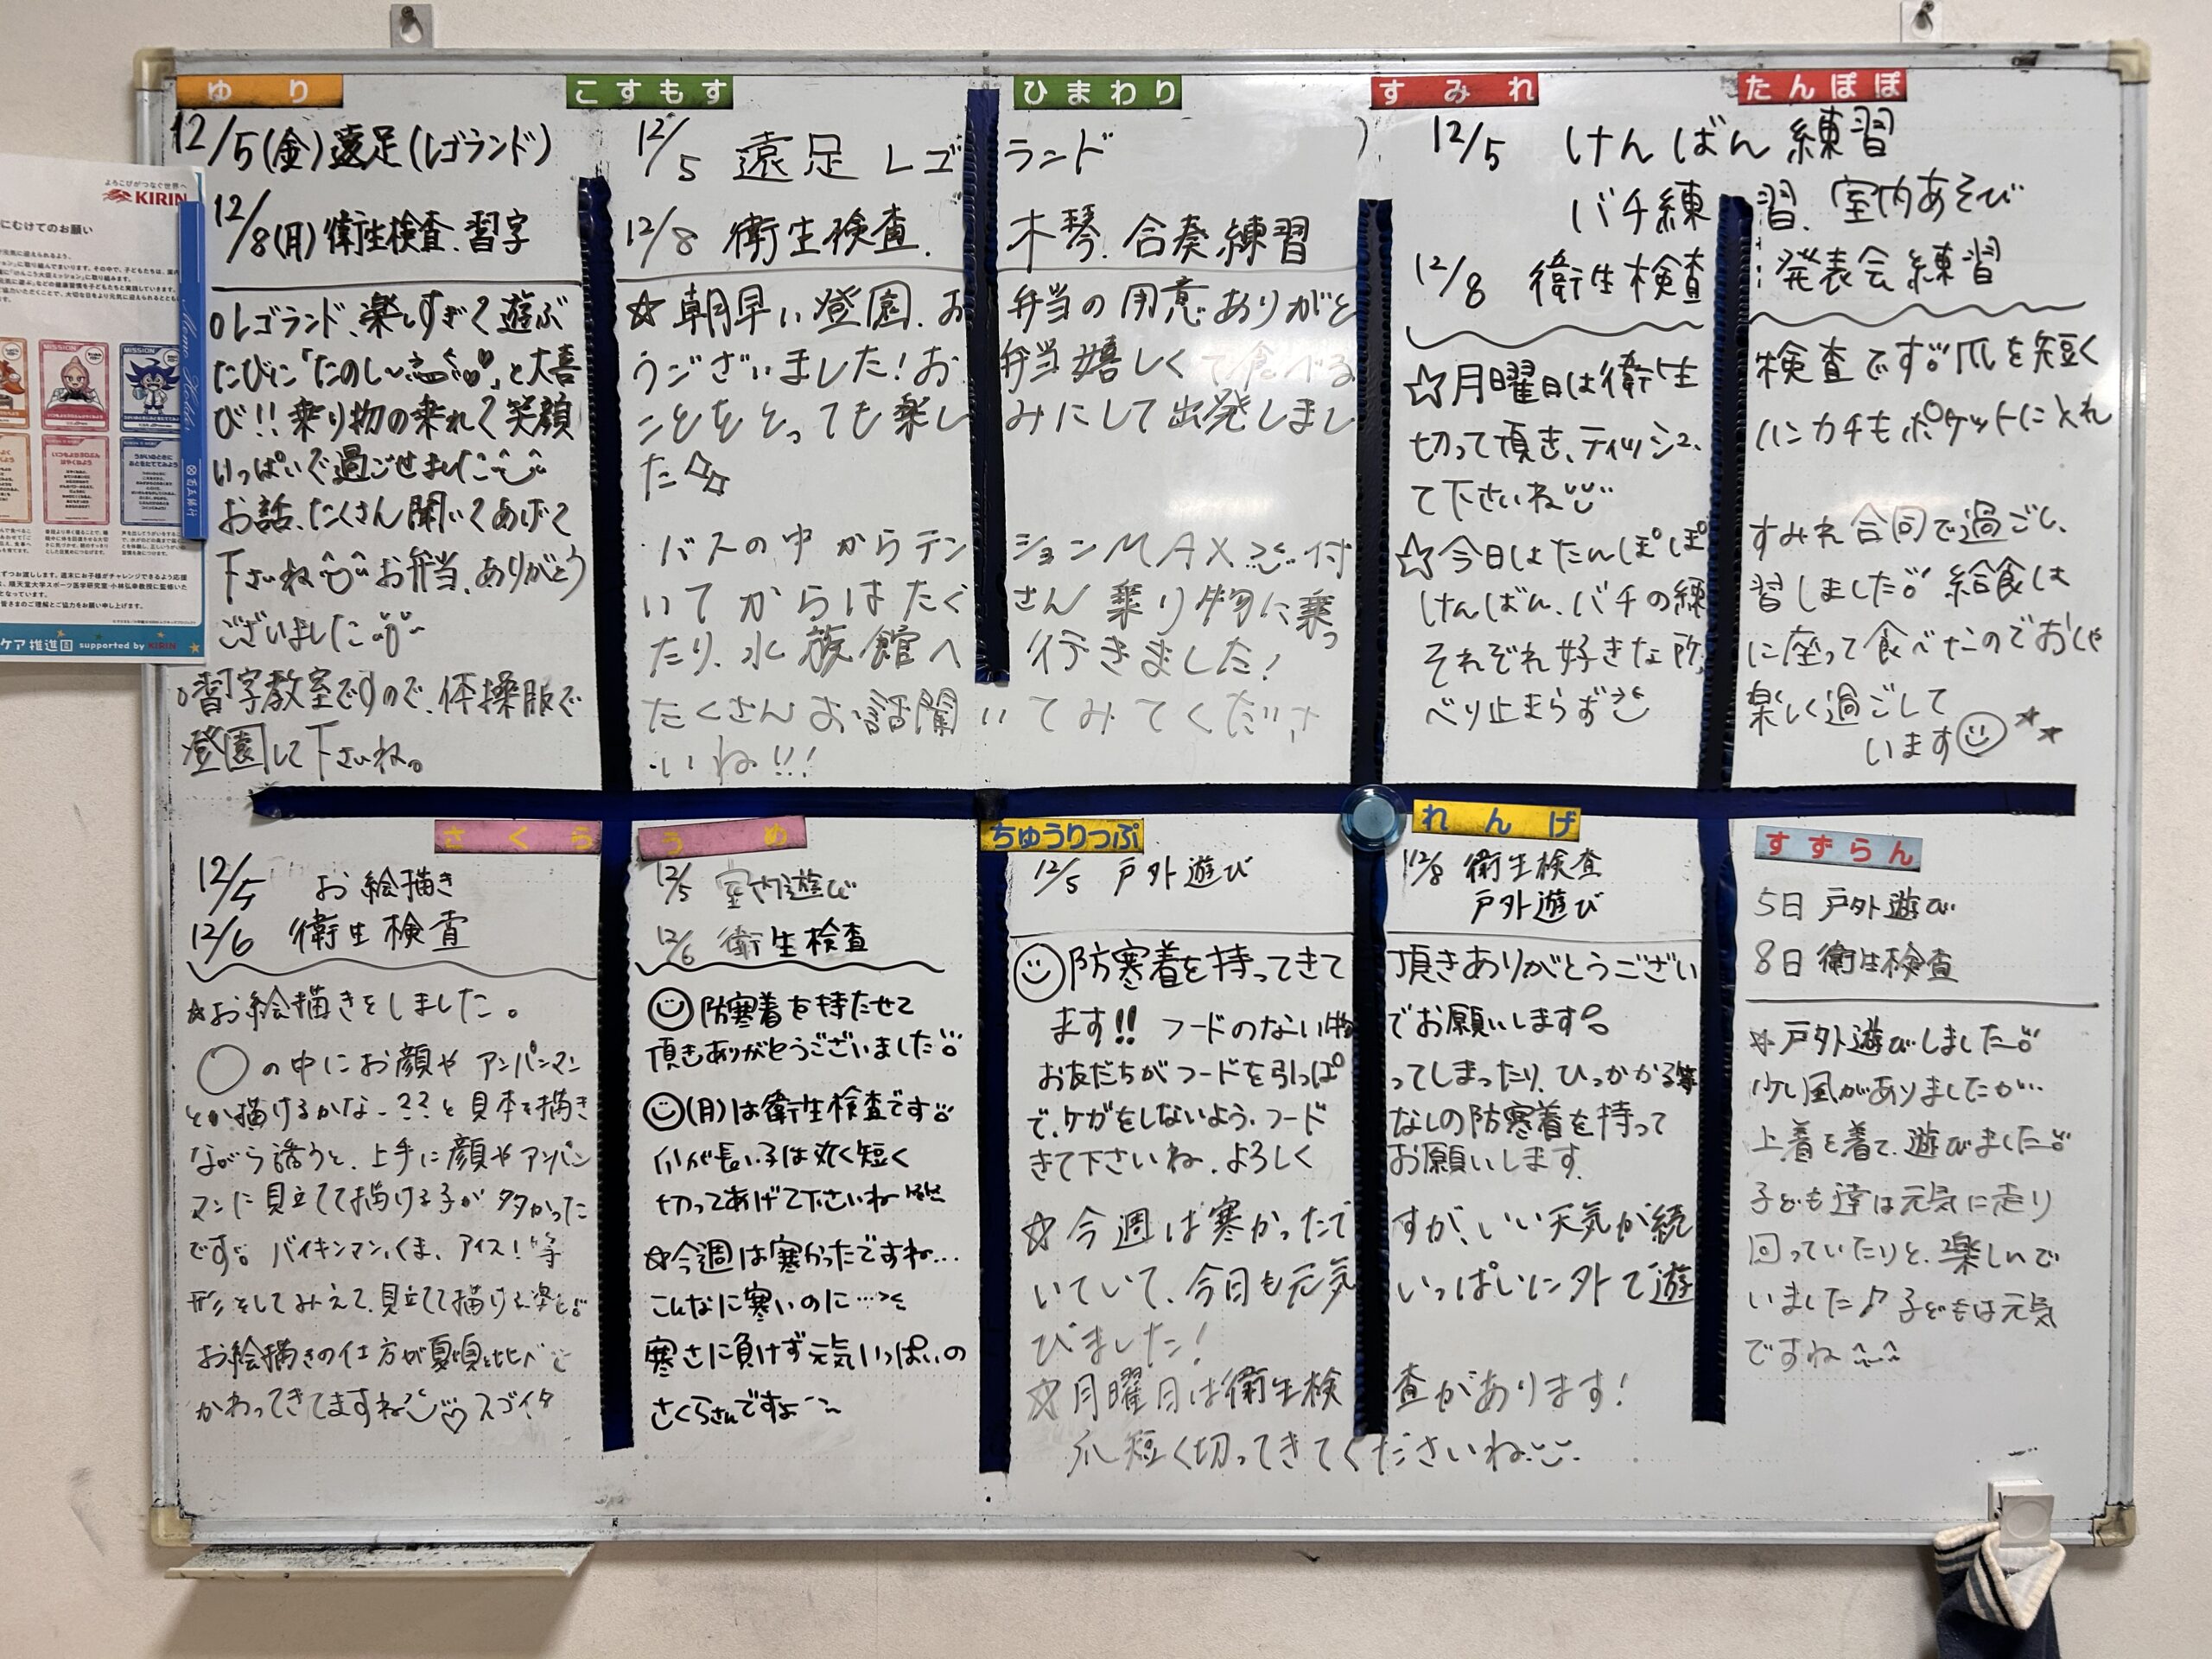 ゆり
12/5(金)遠足(レゴランド)
12/8(月)衛生検査.習字
○レゴランド、楽しすぎて遊ぶ
たびに「たのし〜」と大喜
び!!乗り物の乗れて笑顔
いっぱいで過ごせました
お話、たくさん聞いてあげて
下さいね お弁当、ありがとう
ございました
○習字教室ですので、体操服で
登園して下さいね。
こすもす ひまわり
12/5 遠足 レゴランド
12/8 衛生検査. 木琴.合奏練習
☆朝早い登園.お弁当の用意ありがと
うございました!お弁当嬉しくて食べる
ことをとっても楽しみにして出発しまし
た☆
バスの中からテンションMAX 付
いてからはたくさん乗り物に乗っ
たり、水族館へ行きました!
たくさんお話聞いてみてくださ
いね!!!
すみれ たんぽぽ
12/5 けんばん練習
バチ練習、室内あそび
12/8 衛生検査 発表会練習
☆月曜日は衛生検査です。爪を短く
切って頂き、ティッシュ、ハンカチもポケットに入れ
て下さいね
☆今日はたんぽぽすみれ合同で過ごし、
けんばん、バチの練習しました。給食は
それぞれ好きな所に座って食べたのでおしゃ
べり止まらず 楽しく過ごして
います
さくら
12/5 お絵描き
12/6 衛生検査
☆お絵描きをしました。
○の中にお顔や アンパンマン
とか描けるかな-??と見本を描き
ながら誘うと、上手に顔やアンパン
マンに見立てて描ける子が多かった
です。バイキンマン、くま、アイス!等
形をしてみえて、見立てて描ける姿も。
お絵描きの仕方が夏頃と比べて
かわってきてますね♡スゴイ
うめ
12/5 室内遊び
12/6 衛生検査
防寒着を持たせて
頂きありがとうございました。
(月)は衛生検査です。
爪が長い子は丸く短く
切ってあげて下さいね
☆今週は寒かったですね…
こんなに寒いのに…
寒さに負けず元気いっぱいの
さくらさんですよ
ちゅうりっぷ れんげ
12/5 戸外遊び 12/8 衛生検査
戸外遊び
防寒着を持ってきて頂きありがとうござい
ます!! フードのない物でお願いします。
お友だちがフードを引っぱってしまったり、ひっかかる等
で、ケガをしないよう、フードなしの防寒着を持って
きて下さいね.よろしくお願いします.
☆今週は寒かったですが、いい天気が続
いていて、今日も元気いっぱいに外で遊
びました!
☆月曜日は衛生検査があります!
爪短く切ってきてくださいね
すずらん
5日 戸外遊び
8日 衛生検査
☆戸外遊びしました。
少し風がありましたが…
上着を着て、遊びました。
子ども達は元気に走り
回っていたりと、楽しんで
いました♪子どもは元気
ですね
よろこびがつなぐ世界へ
KIRIN
にむけてのお願い
MISSION
MISSION
ケア推進園 supported by KIRIN